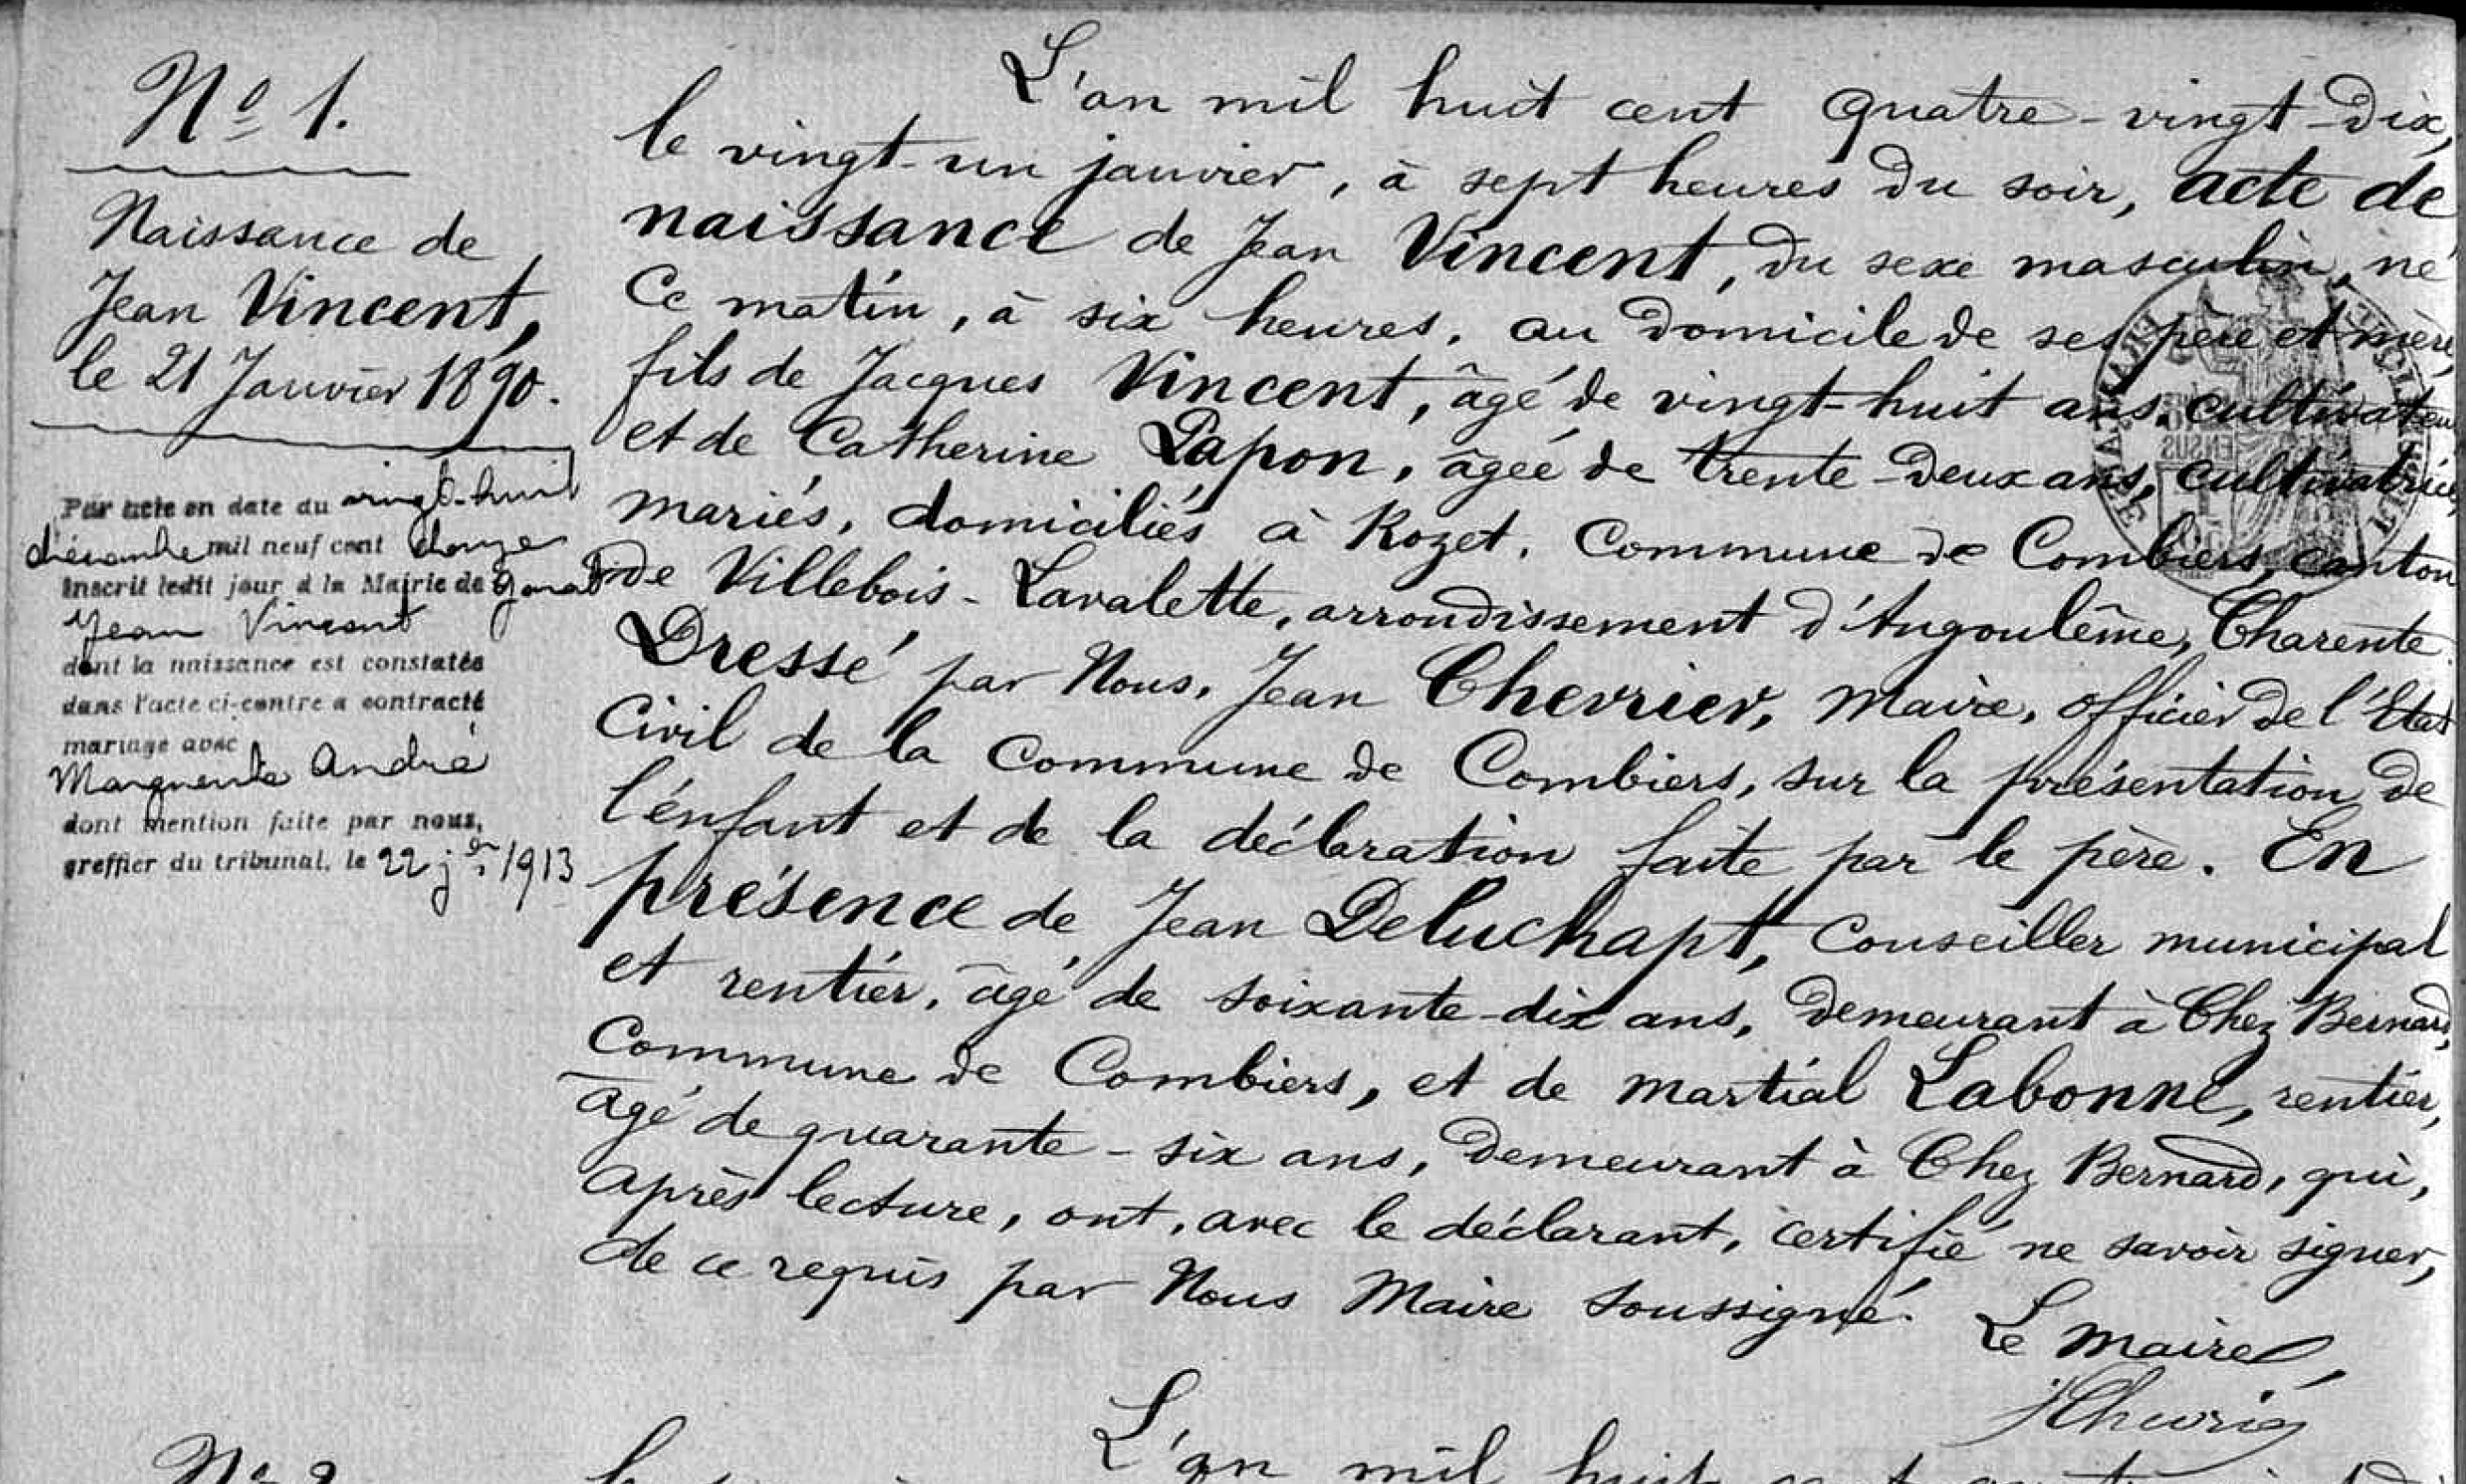 N° 1.
Naissance de
Jean Vincent,
le 21 Janvier 1890.
Par acte en date du vingt-huit
décembre mil neuf cent douze
inscrit ledit jour à la Mairie de
Jean Vincent
dont la naissance est constatée
dans l'acte ci-contre a contracté
mariage avec
Marguerite André
dont mention faite par nous,
greffier du tribunal, le 22 jer 1913
L'an mil huit cent quatre-vingt-dix,
le vingt-un janvier, à sept heures du soir, acte de
naissance de Jean Vincent, du sexe masculin, né
Ce matin, à six heures, au domicile de ses père et mère,
fils de Jacques Vincent, âgé de vingt-huit ans, cultivateur
et de Catherine Papon, âgée de trente-deux ans, cultivatrice,
mariés, domiciliés à Rozet, Commune de Combiers, canton
de Villebois-Lavalette, arrondissement d'Angoulême, Charente.
Dressé par Nous, Jean Chevrier, Maire, officier de l'Etat
Civil de la Commune de Combiers, sur la présentation de
l'énfant et de la déclaration faite par le père. En
présence de Jean Deluchapt, Conseiller municipal
et rentier, âgé de soixante-dix ans, demeurant à Chez Bernard,
Commune de Combiers, et de Martial Labonne, rentier,
âgé de quarante-six ans, demeurant à Chez Bernard, qui,
après lecture, ont, avec le déclarant, certifié ne savoir signer,
de ce requis par Nous Maire soussigné.
Le Maire,
L'an mil huit